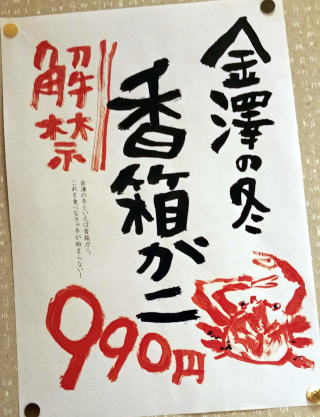 金澤の冬
香箱がニ
解禁
金澤の冬といえば香箱ガニ、
これを食べなきゃ冬が始まらない！
990円